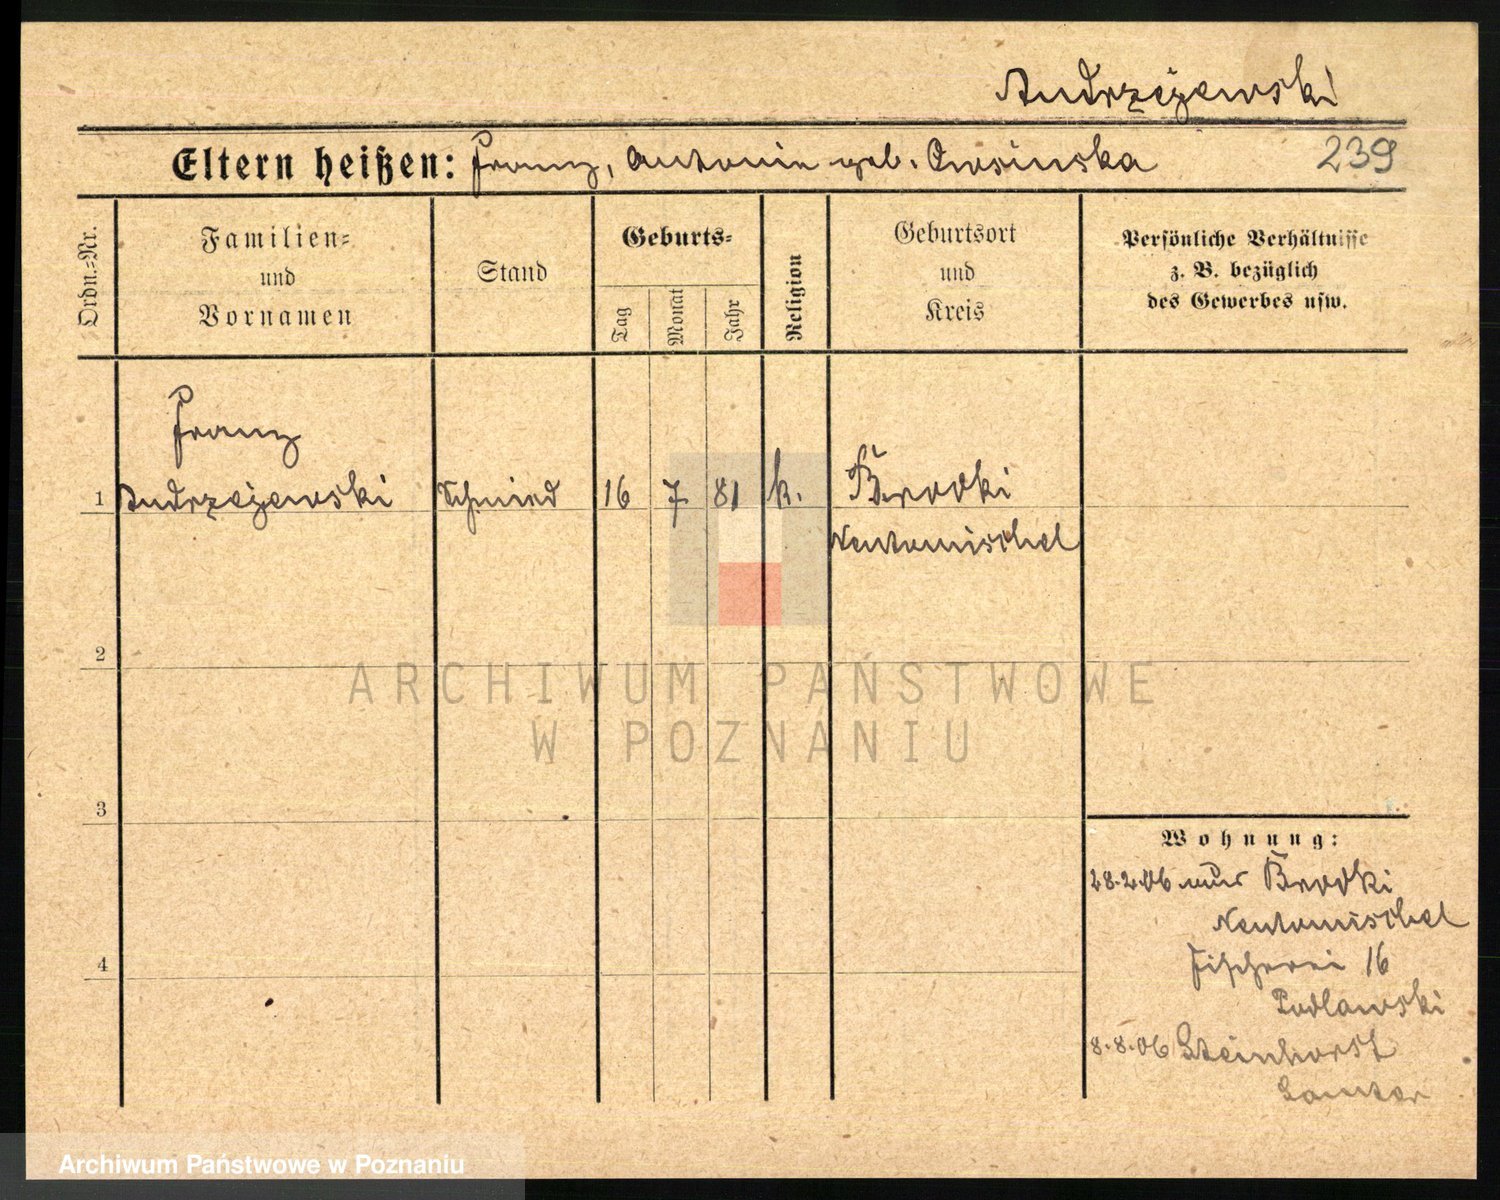 Andrzejewski
Eltern heißen: Franz, Antonie geb. Owsinska
239
Ordn.-Nr.
Familien-
und
Vornamen
Stand
Geburts-
Tag
Monat
Jahr
Religion
Geburtsort
und
Kreis
Persönliche Verhältnisse
z. B. bezüglich
des Gewerbes usw.
Franz
1 Andrzejewski Schmied 16 7. 81 k. Brodki
Neutomischel
2
ARCHIWUM PAŃSTWOWE
W POZNANIU
3
Wohnung:
28.2.06 aus Brodki
Neutomischel
4
Fischerei 16
Podlawski
8.8.06 Steinhorst
Samter
Archiwum Państwowe w Poznaniu